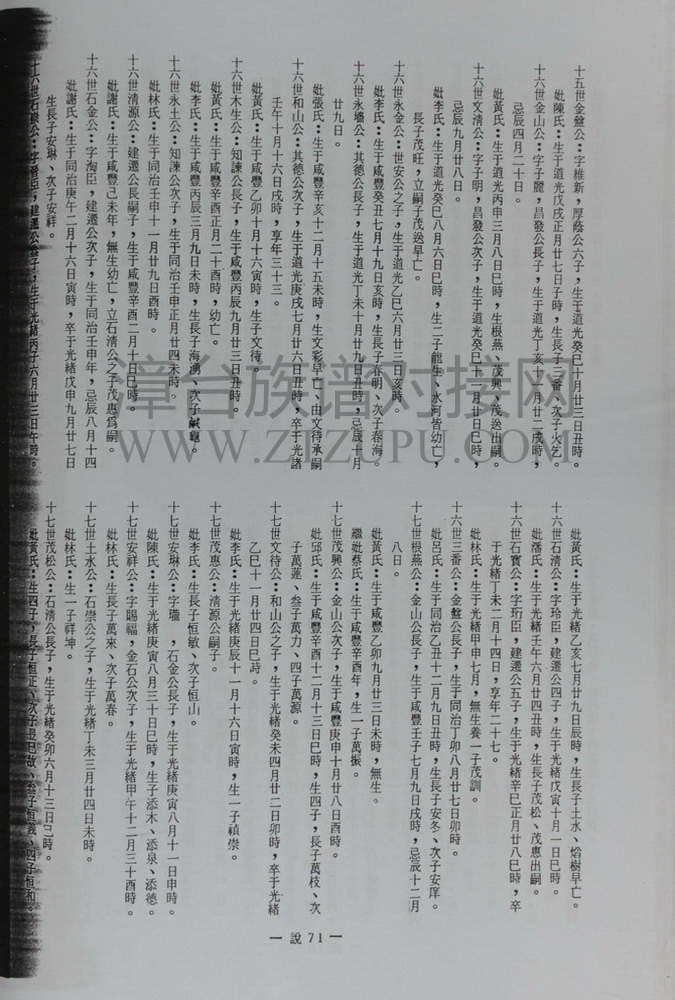 十五世金盤公：字維新，厚蔭公六子，生于道光癸巳十月廿三日丑時。
妣陳氏：生于道光戊戌正月廿七日子時，生長子三番、次子火乞。
十六世金山公：字子麗，昌發公長子，生于道光丁亥十一月廿二戌時，
忌辰四月二十日。
妣黃氏：生于道光丙申三月八日巳時，生根燕、茂興、茂送出嗣。
十六世文清公：字子明，昌發公次子，生于道光癸巳十二月廿日巳時，
忌辰九月廿八日。
妣李氏：生于道光癸巳八月六日巳時，生二子龍生、水河皆幼亡，
長子茂旺，立嗣子茂送早亡。
十六世永金公：世安公之子，生于道光乙巳六月廿三日亥時。
妣李氏：生于咸豐癸丑七月十九日亥時，生長子春明、次子春海。
十六世永墻公：其德公長子，生于道光丁未十月廿九日丑時，忌辰十月
廿九日。
妣張氏：生于咸豐辛亥十二月十五未時，生文彩早亡、由文待承嗣
十六世和山公：其德公次子，生于道光庚戌七月廿六日丑時，卒于光緒
壬午十月十六日戌時，享年三十三。
妣黃氏：生于咸豐乙卯十月十六寅時，生子文待。
十六世木生公：知諫公長子，生于咸豐丙辰九月廿三日丑時。
妣黃氏：生于咸豐辛酉正月二十酉時，幼亡。
妣李氏：生于咸豐丙辰三月九日未時，生長子海湧、次子鹹龜。
十六世永土公：知諫公次子，生于同治壬申正月廿四未時。
妣林氏：生于同治壬申十一月廿九日酉時。
十六世清源公：建遷公長嗣子，生于咸豐辛酉二月十日巳時。
妣謝氏：生于咸豐己未年，無生幼亡，立石清公之子茂惠爲嗣。
十六世石金公：字淘臣，建遷公次子，生于同治壬申年，忌辰八月十四
妣謝氏：生于同治庚午二月十六日寅時，卒于光緒戊申九月廿七日
生長子安琳、次子安祥。
十六世石崇公：字，建遷公叁子，生于光緒丙子六月廿三日午時。
妣黃氏：生于光緒乙亥七月廿九日辰時，生長子土水、焰樹早亡。
十六世石清公：字玲臣，建遷公四子，生于光緒戊寅十月一日巳時。
妣潘氏：生于光緒壬午六月廿四丑時，生長子茂松、茂惠出嗣。
十六世石寶公：字珩臣，建遷公五子，生于光緒辛巳正月廿八巳時，卒
于光緒丁未二月十四日，享年二十七。
妣林氏：生于光緒甲申七月，無生養一子茂訓。
十六世三番公：金盤公長子，生于同治丁卯八月廿七日卯時。
妣呂氏：生于同治乙丑十二月九日丑時，生長子安冬、次子安庠。
十七世根燕公：金山公長子，生于咸豐壬子七月九日戌時，忌辰十二月
八日。
妣黃氏：生于咸豐乙卯九月廿三日未時，無生。
繼妣蔡氏：生于咸豐辛酉年，生一子萬振。
十七世茂興公：金山公次子，生于咸豐庚申十月廿八日酉時。
妣邱氏：生于咸豐辛酉十二月十三日巳時，生四子，長子萬枝、次
子萬蓮、叁子萬力、四子萬源。
十七世文待公：和山公之子，生于光緒癸未四月廿二日卯時，卒于光緒
乙巳十一月廿四日巳時。
妣李氏：生于光緒庚辰十一月十六日寅時，生一子禎崇。
十七世茂惠公：清源公嗣子。
妣李氏：生長子恒敏、次子恒山。
十七世安琳公：字瑞　，石金公長子，生于光緒庚寅八月十一日申時。
妣陳氏：生于光緒庚寅八月三十日巳時，生子添木、添泉、添德。
十七世安祥公：字賜福，金石公次子，生于光緒甲午十二月三十酉時。
妣林氏：生長子萬來、次子萬春。
十七世土水公：石崇公之子，生于光緒丁未三月廿四日未時。
妣林氏：生一子祥坤。
十七世茂松公：石清公長子，生于光緒癸卯六月十三日巳時。
妣黃氏：生四子，長子恒正、次子、叁子恒義、四子恒和。
— 說 71 —
漳台族谱对接网
WWW.ZTZUPU.COM